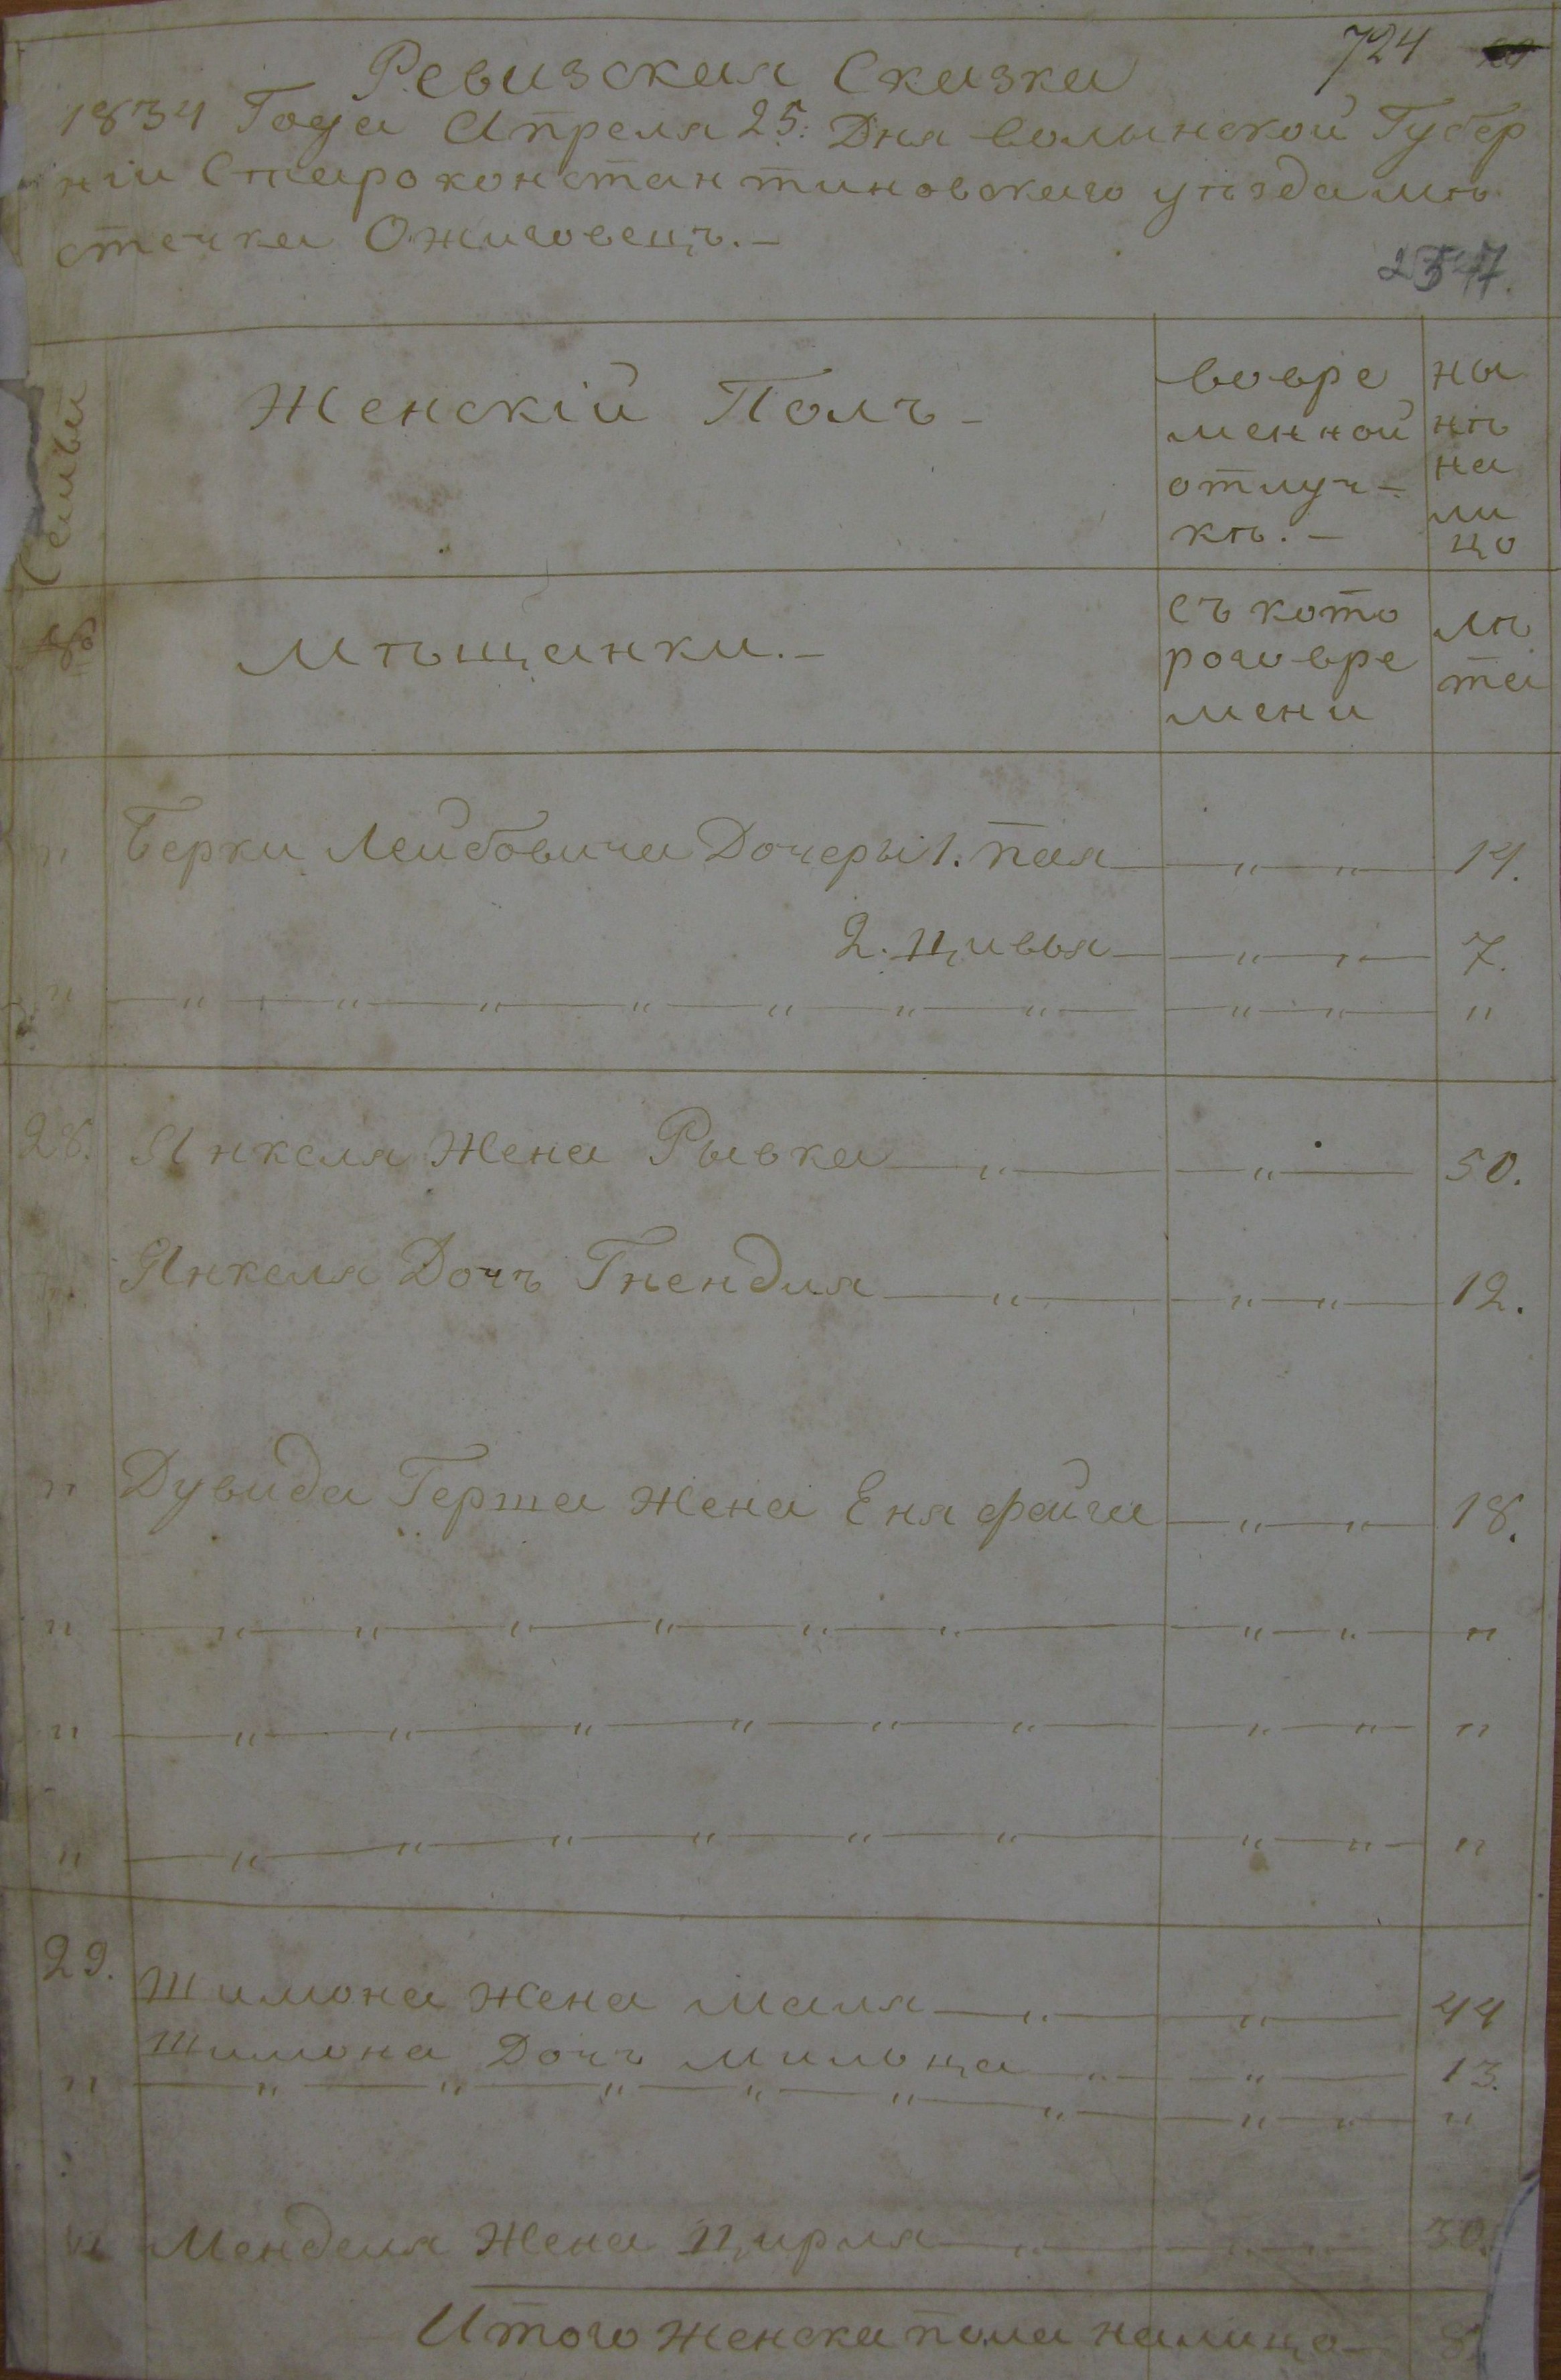 724
Ревизская Сказка
1834 Года Апреля 25: Дня волынской Губер
ніи Староконстантиновскаго уѣзда мѣ
стечка Ожиговецъ.—
Семьи
Женскій Полъ —
вовре
менной
отлуч-
кѣ.—
ны
нѣ
на
ли
цо
№
Мѣщанки.—
съ кото
раго вре
мени
лѣ
та
" Берки Лейбовича Дочеры 1. пая — " — " — 14.
2. цивья — " — " — 7.
" — " — " — " — " — " — " — " — " — " — "
28. Янкеля Жена Рывка — " — " — 50.
Янкеля Дочъ Гнендля — " — " — " — 12.
" Дувида Герша жена Еня файга — " — " — 18.
" — " — " — " — " — " — " — " — " — "
" — " — " — " — " — " — " — " — " — "
" — " — " — " — " — " — " — " — " — "
29. Шимона жена маля — " — " — 44
Шимона Дочъ мильца " — " — 13.
" — " — " — " — " — " — " — " — " — "
" Менделя Жена Цирля — " — " — " — 30.
Итого женска пола налицо — 8